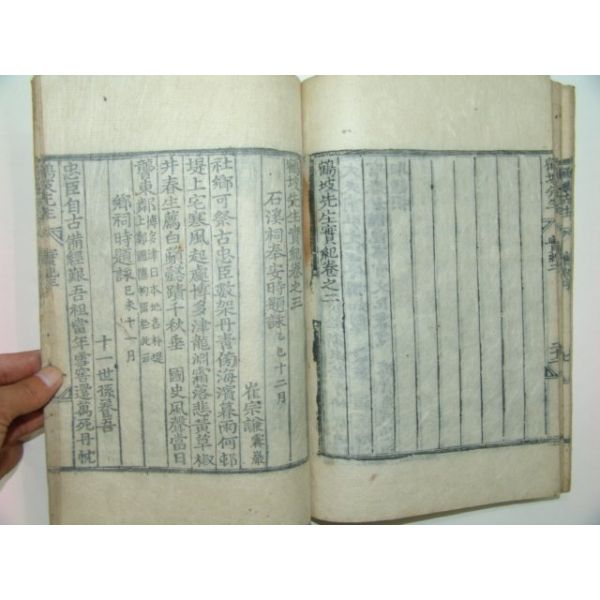 鶴坡先生實紀卷之二
鶴坡先生實紀卷之三
石溪祠奉安時題詠 乙巳十二月
崔宗謙 霽巖
社鄉可祭古忠臣數架丹青傍海濱暮雨何邨
堤上宅寒風起處博多津龍湖霜落悲黃草椒
井春生薦白蘋懿蹟千秋垂國史風聲當日
聾東
鄉祠時題詠 己未十一月
十一世孫養吾
忠臣自古備經艱吾祖當年雪窖還萬死丹忱